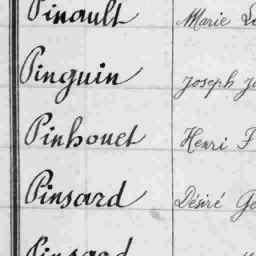 Pinault Marie
Pinguin Joseph
Pinhouet Henri F
Pinsard Désiré Ge
Pinsard